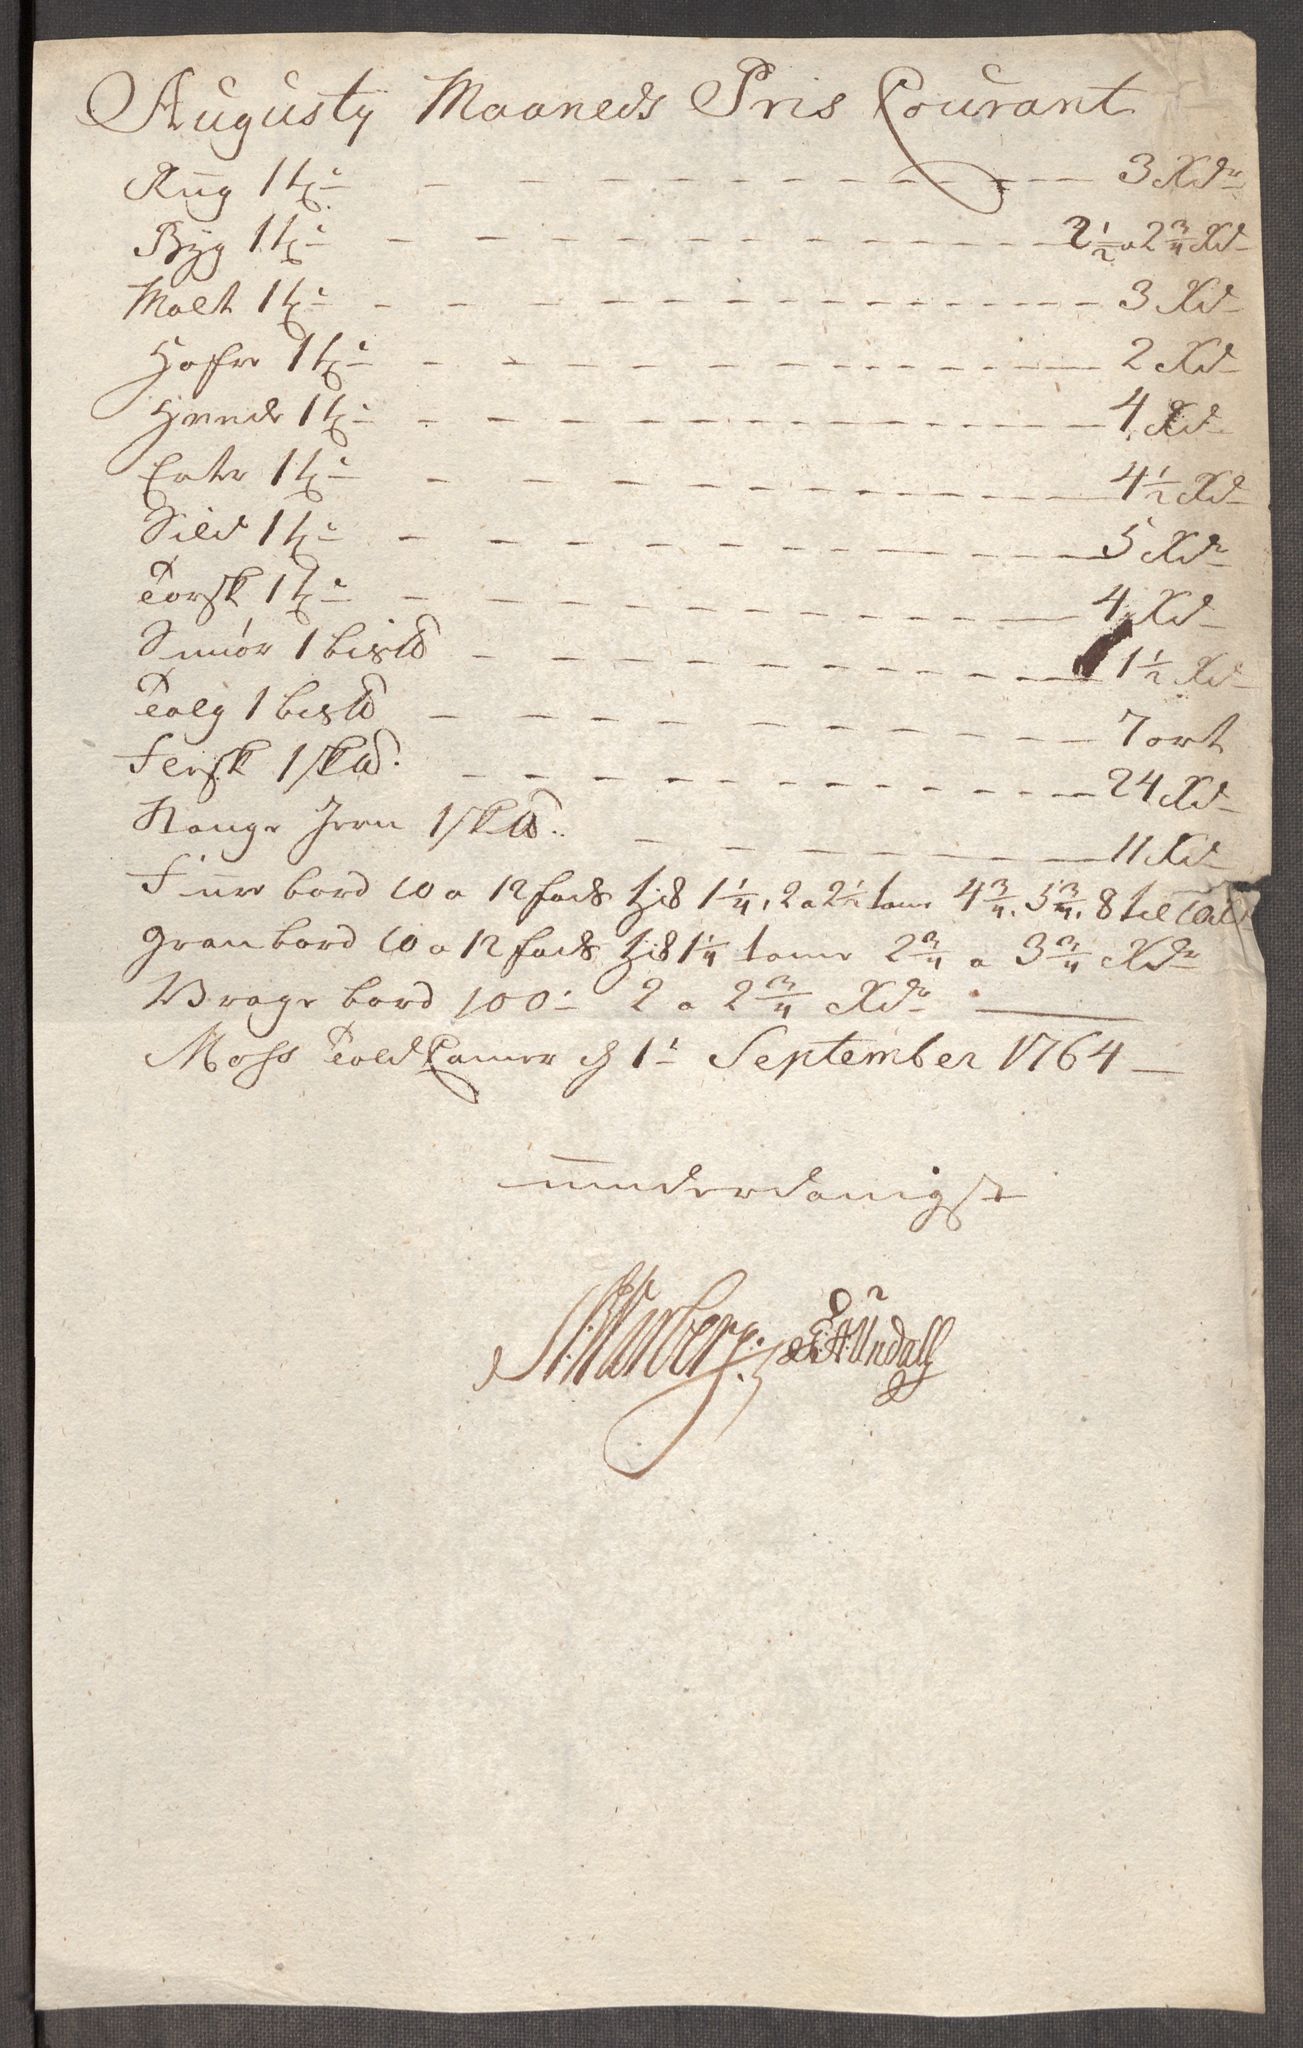 Augusty Maaneds Pris Courant
Rug 1 tr - - - 3 Rdr
Byg 1 tr - - - 2 1/2 a 2 3/4 Rd
Malt 1 tr - - - 3 Rd
Hafre 1 tr - - - 2 Rd
Hvede 1 tr - - - 4 Rd
Erter 1 tr - - - 4 1/2 Rd
Sild 1 tr - - - 5 Rdr
Torsk 1 tr - - - 4 Rd
Smiör 1 bis℔ - - - 1 1/2 Rd
Talg 1 bis℔ - - - 7 ort
Fersk 1 sk℔ - - - 24 Rd
Stange Jern 1 sk℔ - - - 11 Rd
Furre bord 10 a 12 fods 1 1/4, 2 a 2 1/2 tome 4 3/4, 5 3/4, 8 til
Gran bord 10 a 12 fods 1 1/4 tome 2 3/4 a 3 3/4 Rdr
Vrage bord 100 - 2 a 2 3/4 Rdr
Moss Told Camer d 1t September 1764
underdanigst